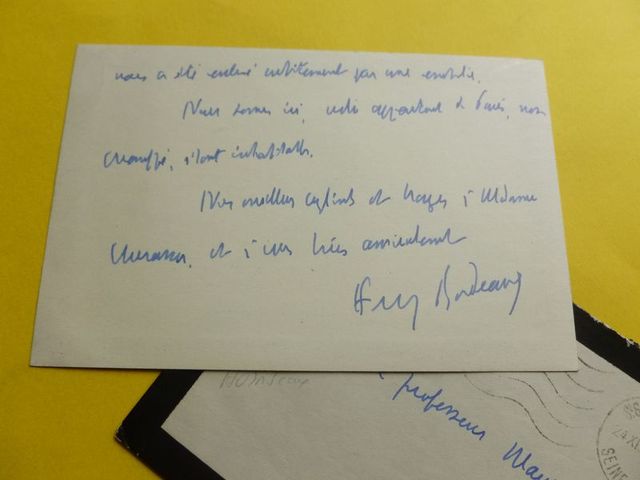 nous a été enlevé subitement par une embolie.
Nous sommes ici, notre appartement de Paris, non
chauffé, étant inhabitable.
Mes meilleurs et hommages à Madame
et à vous bien amicalement
Henry Bordeaux
H Bordeaux
professeur
SEINE